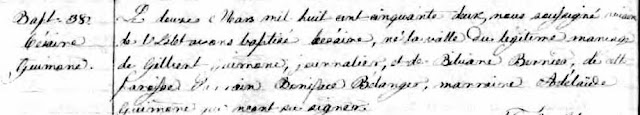 Bapt. 38e
Césaire
Guimond.
Le douze Mars mil huit cent cinquante deux, nous soussigné
de l'Islet avons baptisé Césaire, né la veille du légitime mariage
de Gilbert Guimond, journalier, et de Bernier, de cette
paroisse. Parrain Boniface Bélanger, marraine Adelaïde
Guimond qui n'ont su signer.